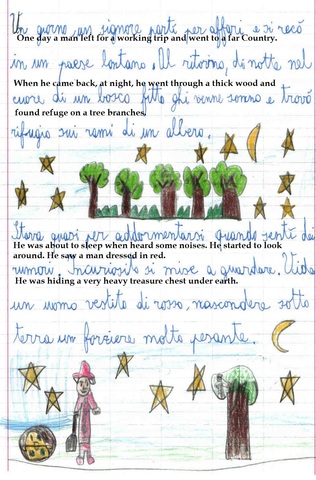 Un giorno un signore partì per affari, e si recò
One day a man left for a working trip and went to a far Country.
in un paese lontano. Al ritorno, di notte nel
When he came back, at night, he went through a thick wood and
cuore di un bosco fitto gli venne sonno e trovò
found refuge on a tree branches.
rifugio sui rami di un albero.
Stava quasi per addormentarsi quando sentì dei
He was about to sleep when heard some noises. He started to look
around. He saw a man dressed in red.
rumori. Incuriosito si mise a guardare. Vide
He was hiding a very heavy treasure chest under earth.
un uomo vestito di rosso, nascondere sotto
terra un forziere molto pesante.